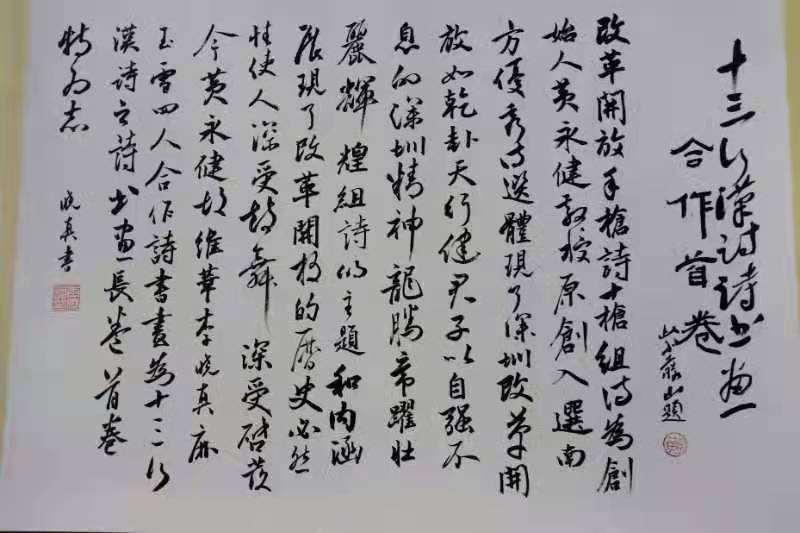 十三行漢詩詩书画
合作首卷
山題
改革開放手槍詩十槍組诗為創
始人黄永健教授原創入選南
方優秀诗選體現了深圳改革開
放如乾卦天行健君子以自强不
息的深圳精神龍騰帝躍壯
麗輝煌組詩的主題和内涵
展現了改革開放的曆史必然
性使人深受鼓舞深受啓發
今黄永健胡維華李晓真麻
玉雪四人合作詩書畫為十三行
漢詩之詩书画長卷首卷
特为志
晓真書